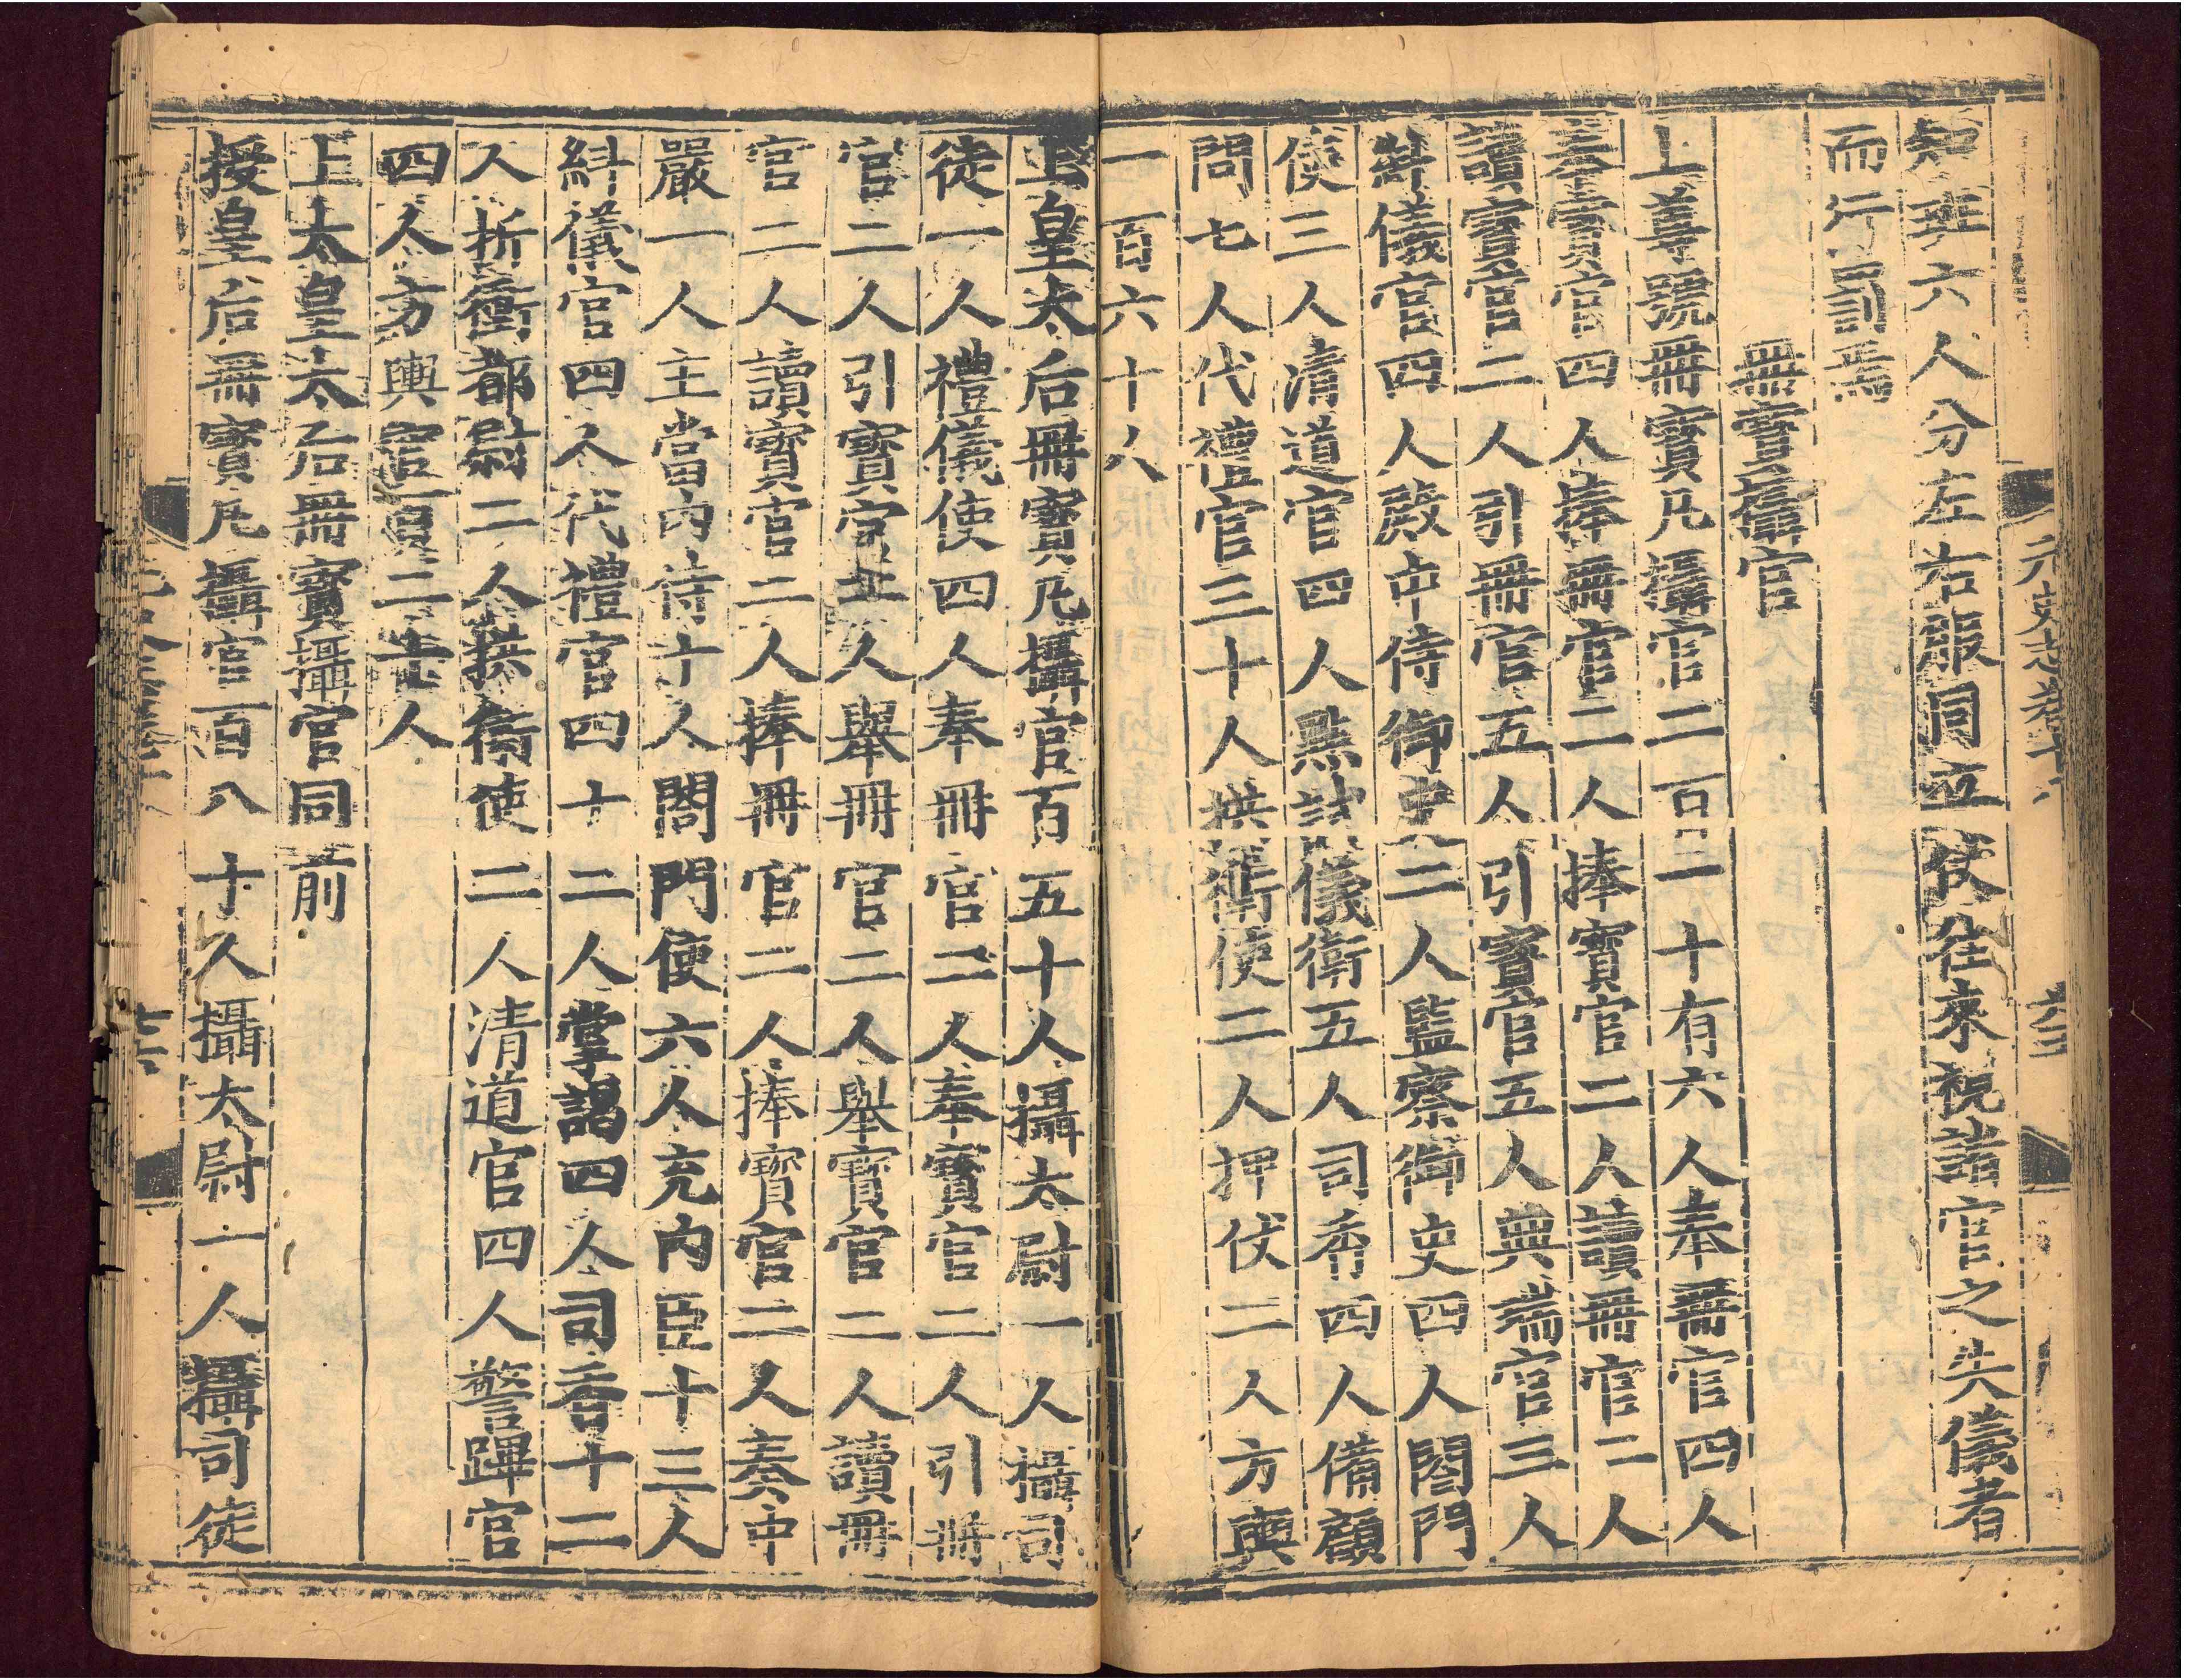 知班六人分左右服同立仗徃來視諸官之失儀者
而行罰焉
冊寳攝官
上尊號冊寳凡攝官二百二十有六人奉冊官四人
奉寳官四人捧冊官二人捧寳官二人讀冊官二人
讀寳官二人引冊官五人引寳官五人典瑞官三人
糾儀官四人殿中侍御史二人監察御史四人閤門
使三人清道官四人點試儀衛五人司香四人備顧
問七人代禮官三十人拱衛使二人押仗二人方輿
一百六十八
上皇太后冊寳凡攝官百五十人攝太尉一人攝司
徒一人禮儀使四人奉冊官二人奉寳官二人引冊
官二人引寳官二人舉冊官二人舉寳官二人讀冊
官二人讀寳官二人捧冊官二人捧寳官二人奏中
嚴一人主當內侍十人閤門使六人充內臣十三人
糾儀官四人代禮官四十二人掌謁四人司香十二
人折衝都尉二人拱衛使二人清道官四人警蹕官
四人方輿官百二十人
上太皇太后冊寳攝官同前
授皇后冊寳凡攝官百八十人攝太尉一人攝司徒
元史志卷十八
六三